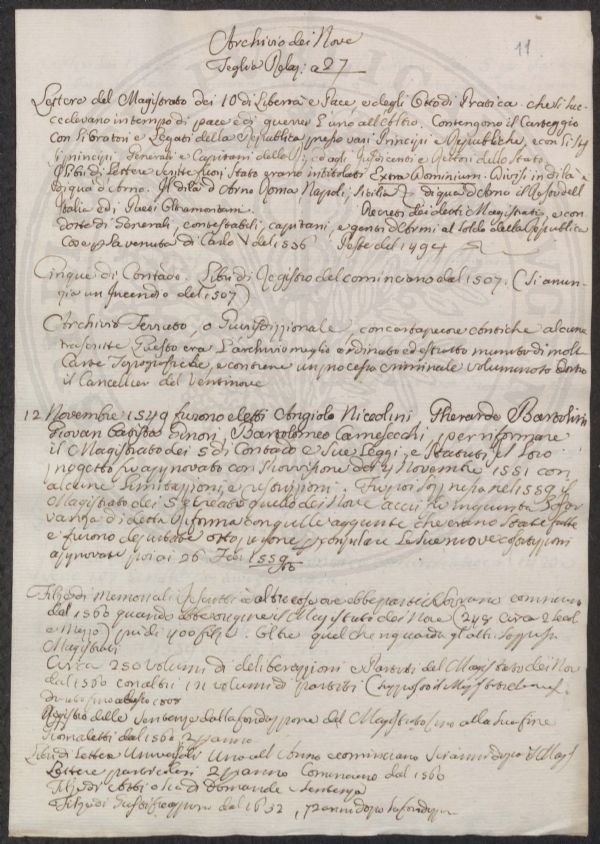 Archivio dei Nove
Teglia Relaz: a 27
11
Lettere del Magistrato dei 10 di Libertà e Pace, e degli Otto di Pratica che si suc-
cedevano in tempo di pace e di guerra l'uno all'altro. Contengono il Carteggio
con Oratori e Legati della Repubblica presso vari Principi e Repubbliche, e con
principi Generali e Capitani della e Rettori dello Stato
di Lettere scritte fuori Stato erano intitolati Extra Dominium. Divisi in di là e
di qua d'Arno. Il di là d'Arno Roma Napoli, Sicilia di qua d'Arno il
Italia ed i Paesi Oltramontani. Decreti dei detti Magistrati, e con
dotte di Generali, contestabili, capitani, e genti d'Armi al soldo della Repubblica
Cose p la venuta di Carlo V del 1536 Peste del 1494
Cinque di Contado. Libri di Registro del cominciano dal 1507. (Si anun-
zia un Incendio del 1507)
Archivio Ferrato, o Giurisdizionale, con cartapecore antiche alcune
trascritte Questo era l'archivio meglio ordinato ed estratto munito di molte
Carte Topografiche, e contiene un processo criminale voluminoso contro
il Cancellier del Ventinove
12 Novembre 1549 furono eletti Angiolo Nicolini Gherardo Bartolini
Giovan Batista Ginori, Bartolomeo Camescchi, per riformare
il Magistrato dei 5 di Contado e Sue Leggi, e Statuti, il loro
progetto fu approvato con Provvisione del 4 Novembre 1551 con
alcune limitazioni, e restrizioni. Fu poi soppresso nel 1559 il
Magistrato dei 5 e creato quello dei Nove a cui fu ingiunta l'osser-
vanza di detta Riforma con quelle aggiunte che erano state fatte
e furono deputate otto persone p compilare le sue nuove costituzioni
approvate poi ai 26 Feb. 1559
Filze di memoriali Rescritti e altre cose ove ebbe parte il Sovrano comincia
dal 1560 quando ebbe origine il Magistrato dei Nove (248 circa 2 secoli
e mezzo) più di 400 filze. Oltre quel che riguarda gl'altri soppressi
Magistrati
Circa 250 volumi di deliberazioni e Partiti del Magistrato dei Nove
dal 1560 con altri 111 volumi di partiti (soppresso il Magistrato dei
1808
Registro delle Sentenze dalla fondazione del Magistrato fino alla sua fine
Giornaletti dal 1560
Libri di Lettere Universali Uno all'Anno e cominciano anni dopo il Mag
Lettere particolari 2 p anno Cominciano dal 1560
Filze di Atti o sia di Domande e Sentenze
Filze di Giustificazioni dal 1632, 72 anni dopo la fondazione